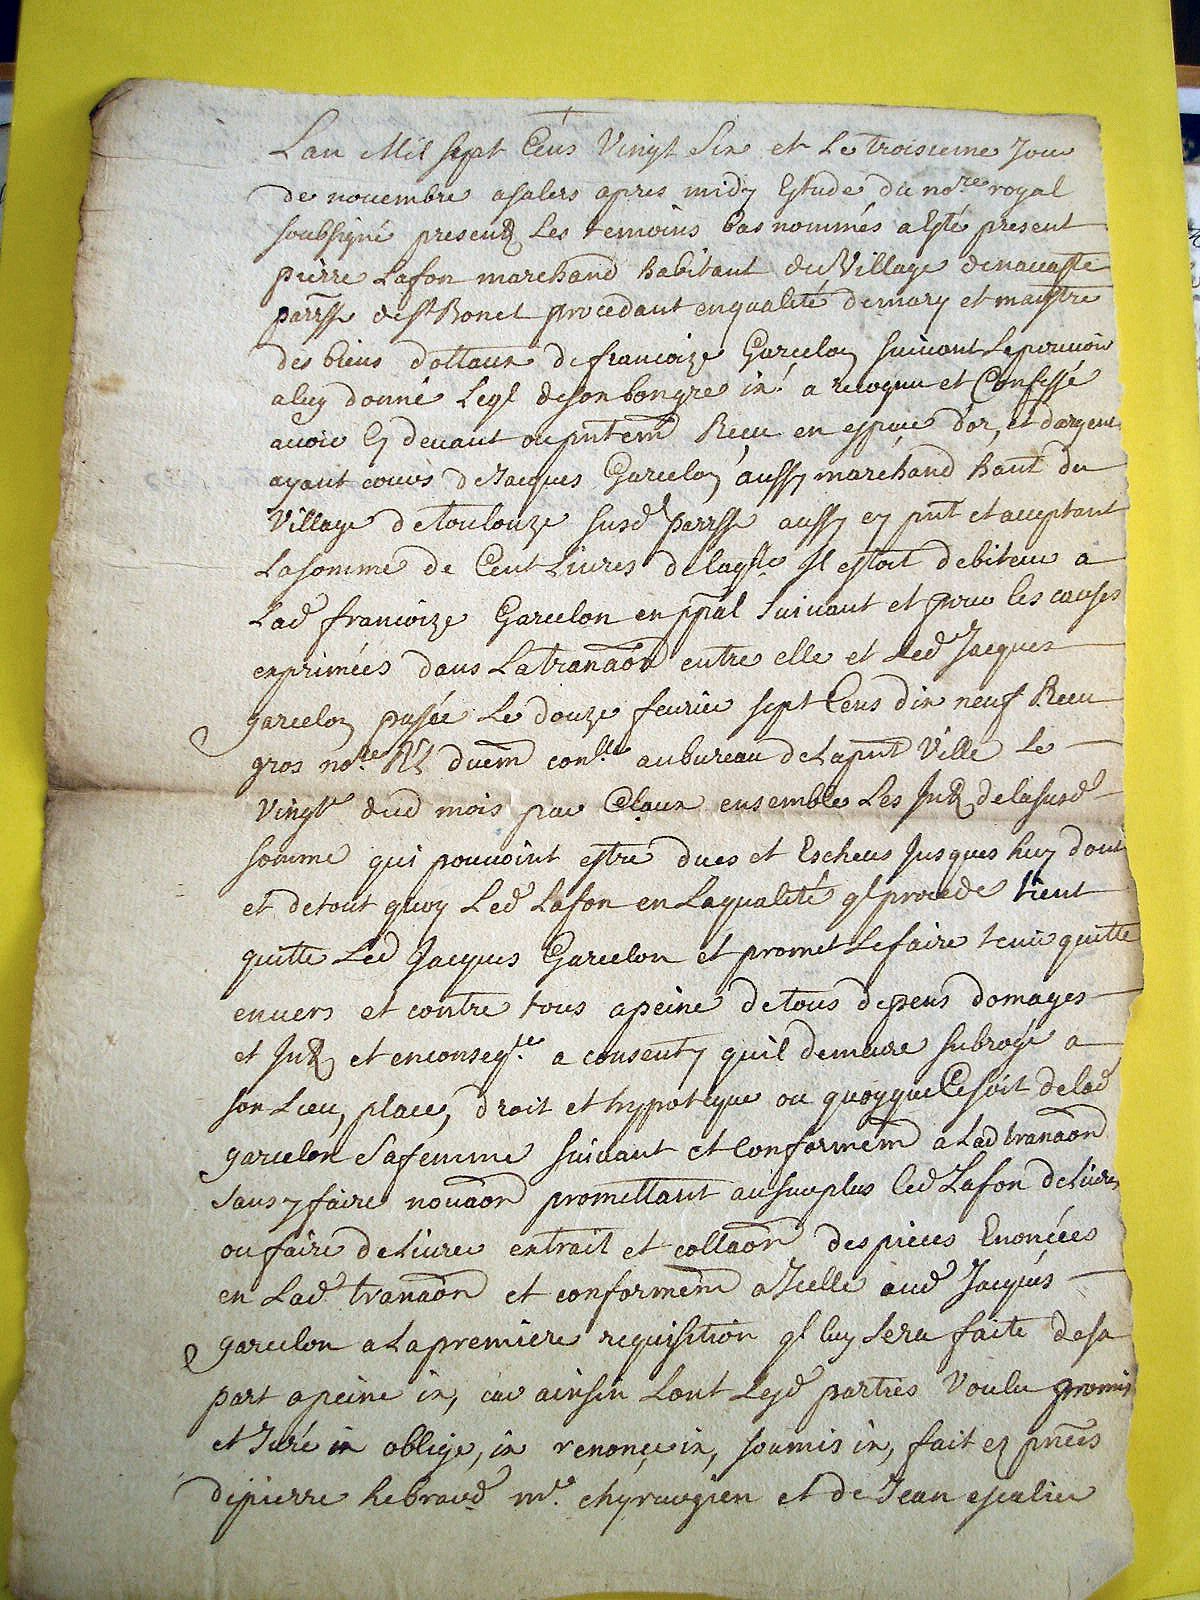 Lan Mil sept Cens Vingt Six et Le troisieme Jour
de nouembre a salers apres midy Estude du no.re royal
soubsigné presens Les temoins bas nommés a Esté present
pierre Lafon marchand habitant du Village de
parrsse de st Bonet procedant en qualité de mary et maistre
des biens dottaux de francoize Garcelon suiuant Le pouuoir
a luy donné Leql de son bon gre in. a recognu et Confessé
auoir Cy deuant ou pntem Receu en espece d'or, et d'argent
ayant cours de Jacques Garcelon aussy marchand haut du
Village de toulouze susd parrsse aussy cy pnt et acceptant
La somme de Cent Liures de laqlle Il estoit debiteur a
Lad francoize Garcelon en ppal suiuant et pour les causes
exprimées dans La tranaon entre elle et Led Jacques
garcelon passée Le douze feurier sept Cens dix neuf Receu
gros no.re Rl duem con.lle au bureau de La pnt Ville Le
Vingt dud mois par Claux ensemble Les de la susd
somme qui pouuoint estre dues et Escheus Jusques huy dont
et de tout quoy Led Lafon en La qualité ql procede tient
quitte Led Jacques Garcelon et promet Le faire tenir quitte
enuers et contre tous a peine de tous depens domages
et et en conseq.ce a consenty quil demeure subrogé a
son Lieu, place, droit et hypoteque ou quoy que Ce soit de lad
garcelon sa femme suiuant et Conformem a Lad tranaon
sans y faire nouaon promettant au surplus led Lafon de Liurer
ou faire de Liurer extrait et collaon des pieces Enoncées
en Lad tranaon et conformem a Icelle aud Jacques
garcelon a La premiere requisition ql luy sera faite de sa
part a peine in, car ainsin Lont Lesd parties Voulu promis
et Juré in oblige, in renonce in, soumis in, fait ez pnces
de pierre hebrard m.e chyrurgien et de Jean escalier